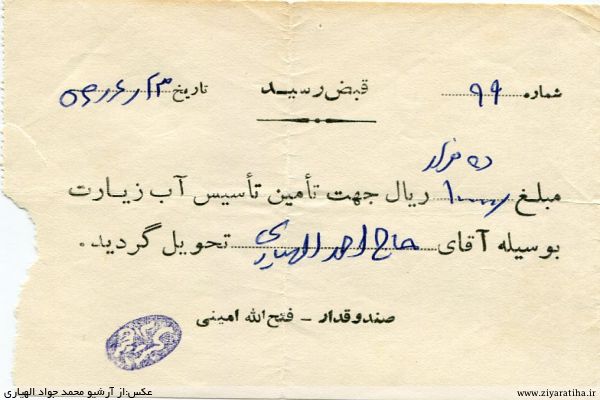 قبض رسید
شماره ۹۹ تاریخ ۵۹/۶/۲۳
ده هزار
مبلغ ۱۰۰۰۰ ریال جهت تأمین تأسیس آب زیارت
بوسیله آقای حاج احمد الهیاری تحویل گردید.
صندوقدار - فتح الله امینی
عکس: از آرشیو محمد جواد الهیاری
www.ziyaratiha.ir